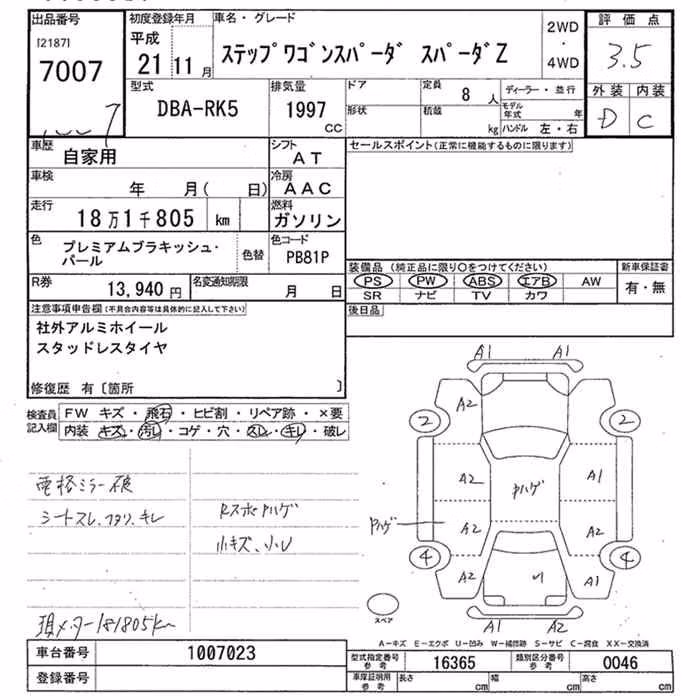 出品番号
[2187]
7007
初度登録年月
平成
21 11月
車名・グレード
ステップワゴンスパーダ スパーダZ
2WD
・
4WD
評価点
3.5
外装 内装
D C
型式
DBA-RK5
排気量
1997
CC
ドア
形状
定員
8 人
積載
kg
ディーラー・並行
モデル年式 年
ハンドル 左・右
車歴
自家用
シフト
AT
車検
年 月( 日)
冷房
AAC
走行
18万1千805 km
燃料
ガソリン
色
プレミアムブラキッシュ・
パール
色替
色コード
PB81P
R券
13,940 円
名変通知期限
月 日
セールスポイント(正常に機能するものに限ります)
装備品(純正品に限り○をつけてください)
PS PW ABS エアB AW
SR ナビ TV カワ
新車保証書
有・無
後日品
注意事項申告欄(不具合内容等は具体的に記入して下さい)
社外アルミホイール
スタッドレスタイヤ
修復歴 有〔箇所 〕
検査員
記入欄
FW キズ・飛石・ヒビ割・リペア跡・×要
内装 キズ・汚レ・コゲ・穴・スレ・キレ・破レ
電格ミラー破
シートスレ、コゲ、キレ
Rスポハゲ
小キズ、小凹
現メーター181805km
A1 A1
A2
2 2
A2 ハゲ A1
ハゲ
A2 A2
4 4
A2 A1
A1 A2
スペア
A-キズ E-エクボ U-凹み W-補修跡 S-サビ C-腐食 XX-交換済
車台番号
1007023
登録番号
型式指定番号
参考
16365
類別区分番号
参考
0046
車庫証明用
参考
長さ cm 幅 cm 高さ cm